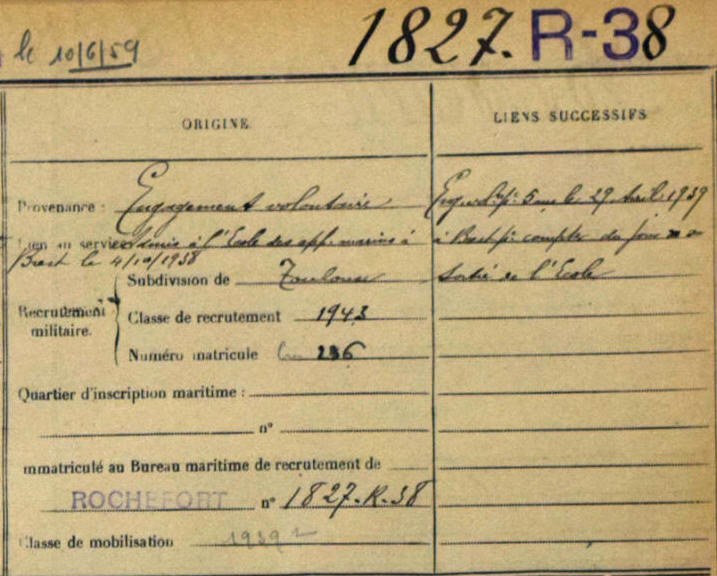 le 10/6/59
1827. R-38
ORIGINE
Provenance : Engagement volontaire
Lien au service Admis à l'Ecole des app. marins à
Brest le 4/10/1938
Recrutement militaire.
Subdivision de Toulouse
Classe de recrutement 1943
Numéro matricule 236
Quartier d'inscription maritime :
n°
mmatriculé au Bureau maritime de recrutement de
ROCHEFORT n° 1827-R-38
Classe de mobilisation 1939
LIENS SUCCESSIFS
Eng. vol. pr 5 ans le 29 Avril 1939
à Brest pr compter du jour de sa
sortie de l'Ecole